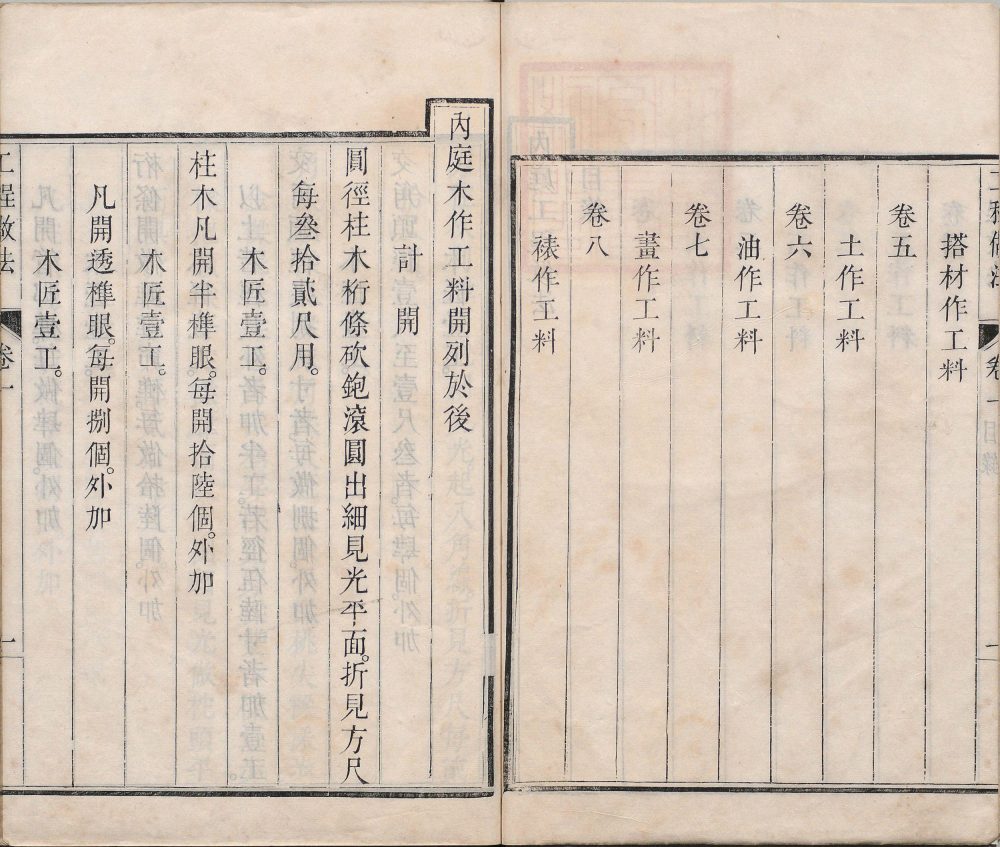 搭材作工料
卷五
土作工料
卷六
油作工料
卷七
畫作工料
卷八
裱作工料
內庭木作工料開列於後
計開
圓徑柱木桁條砍鉋滾圓出細見光平面。折見方尺
每叁拾貳尺用。
木匠壹工。
柱木凡開半榫眼。每開拾陸個。外加
木匠壹工。
凡開透榫眼。每開捌個。外加
木匠壹工。
工程做法 卷一 一